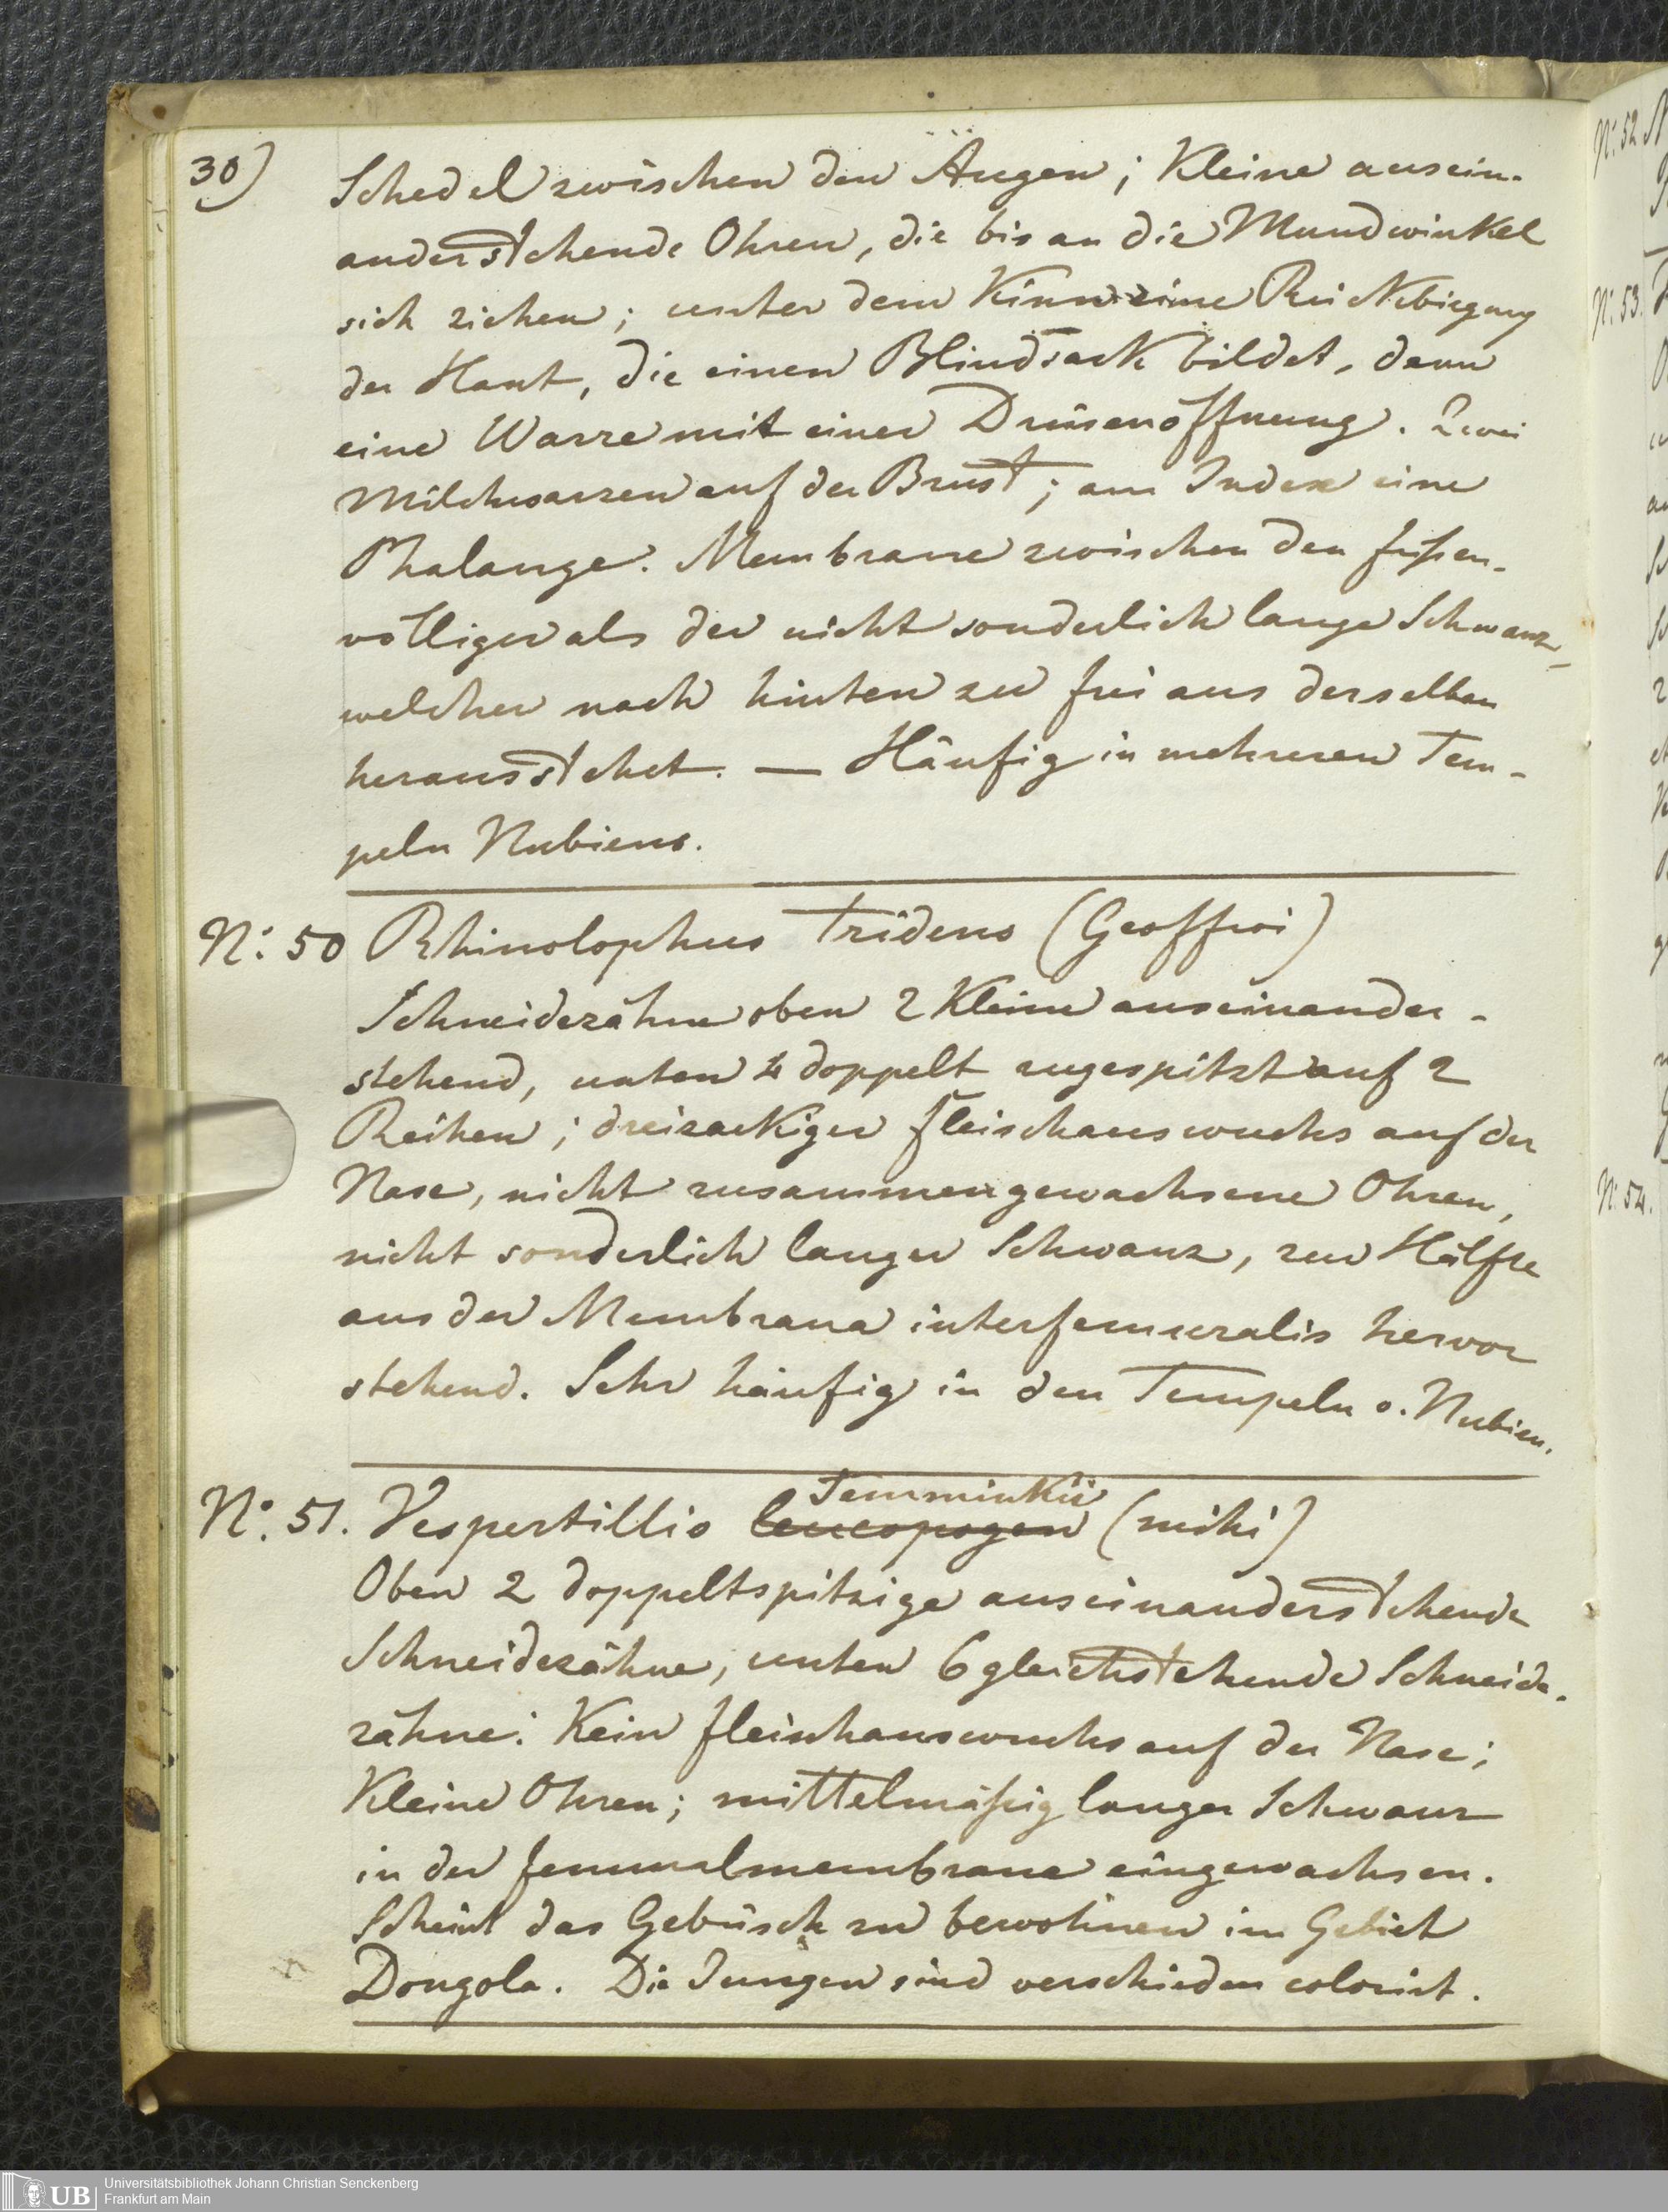 30)
Schedel zwischen den Augen; Kleine ausein-
anderstehende Ohren, die bis an die Mundwinkel
sich ziehen; unter dem Kinn eine Rückbiegung
der Haut, die einen Blindsack bildet, dann
eine Warze mit einer Drüsenöffnung. Zwei
Milchwarzen auf der Brust; am Index eine
Phalange. Membrane zwischen den füßen
völliger als der nicht sonderlich lange Schwanz,
welcher nach hinten zu frei aus derselben
herausstehet. — Häufig in mehreren Tem-
peln Nubiens.
N: 50 Rhinolophus Tridens (Geoffroi)
Schneidezähne oben 2 Kleine auseinander-
stehend, unten 4 doppelt zugespitzt auf 2
Reihen; dreizackiger fleischauswuchs auf der
Nase, nicht zusammengewachsene Ohren,
nicht sonderlich langer Schwanz, zur Hälfte
aus der Membrana interfemuralis hervor
stehend. Sehr häufig in den Tempeln v. Nubien.
Temminkii
N: 51. Vespertillio leucopogon (mihi)
Oben 2 doppeltspitzige auseinanderstehende
Schneidezähne, unten 6 gleichstehende Schneide-
zähne: Kein fleischauswuchs auf der Nase;
Kleine Ohren; mittelmäßig langer Schwanz
in der femuralmembrane eingewachsen.
Scheint das Gebüsch zu bewohnen im Gebiet
Dongola. Die Jungen sind verschieden colorirt.
N: 52
N: 53.
N: 54.
UB
Universitätsbibliothek Johann Christian Senckenberg
Frankfurt am Main